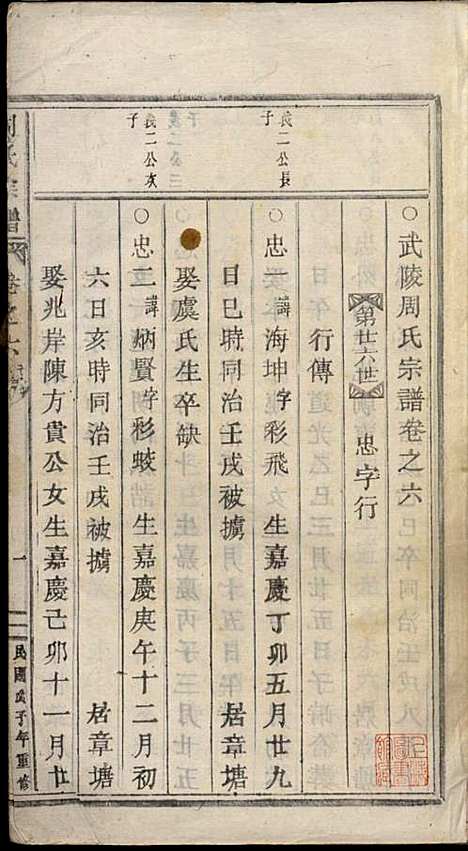 ○武陵周氏宗譜卷之六
第廿六世 忠字行
行傳
義二公長子
○忠一諱海坤字彩飛 生嘉慶丁卯五月廿九
日巳時同治壬戌被擄 居章塘
娶虞氏生卒缺
義二公次子
○忠二諱炳賢字彩蛟 生嘉慶庚午十二月初
六日亥時同治壬戌被擄 居章塘
娶兆岸陳方貴公女生嘉慶己卯十一月廿
周氏宗譜 卷之六
一
民國戊子年重修